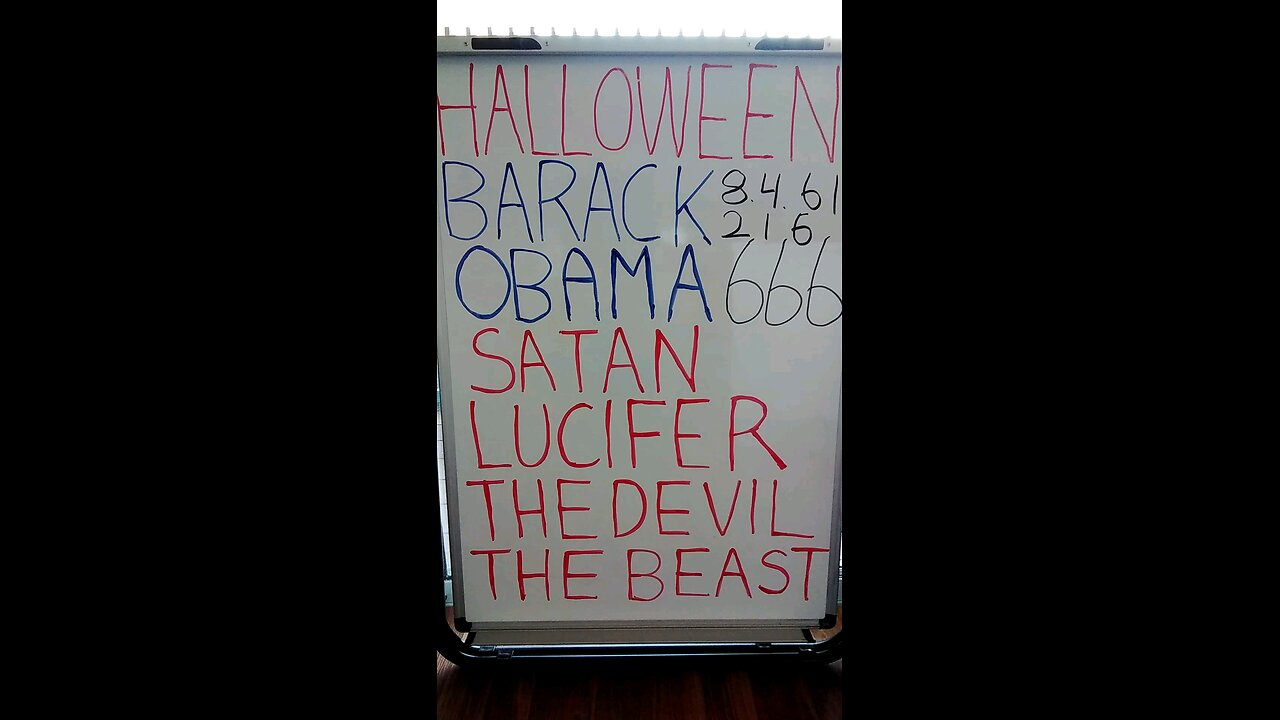 HALLOWEEN
BARACK 8.4.61
216
OBAMA 666
SATAN
LUCIFER
THE DEVIL
THE BEAST